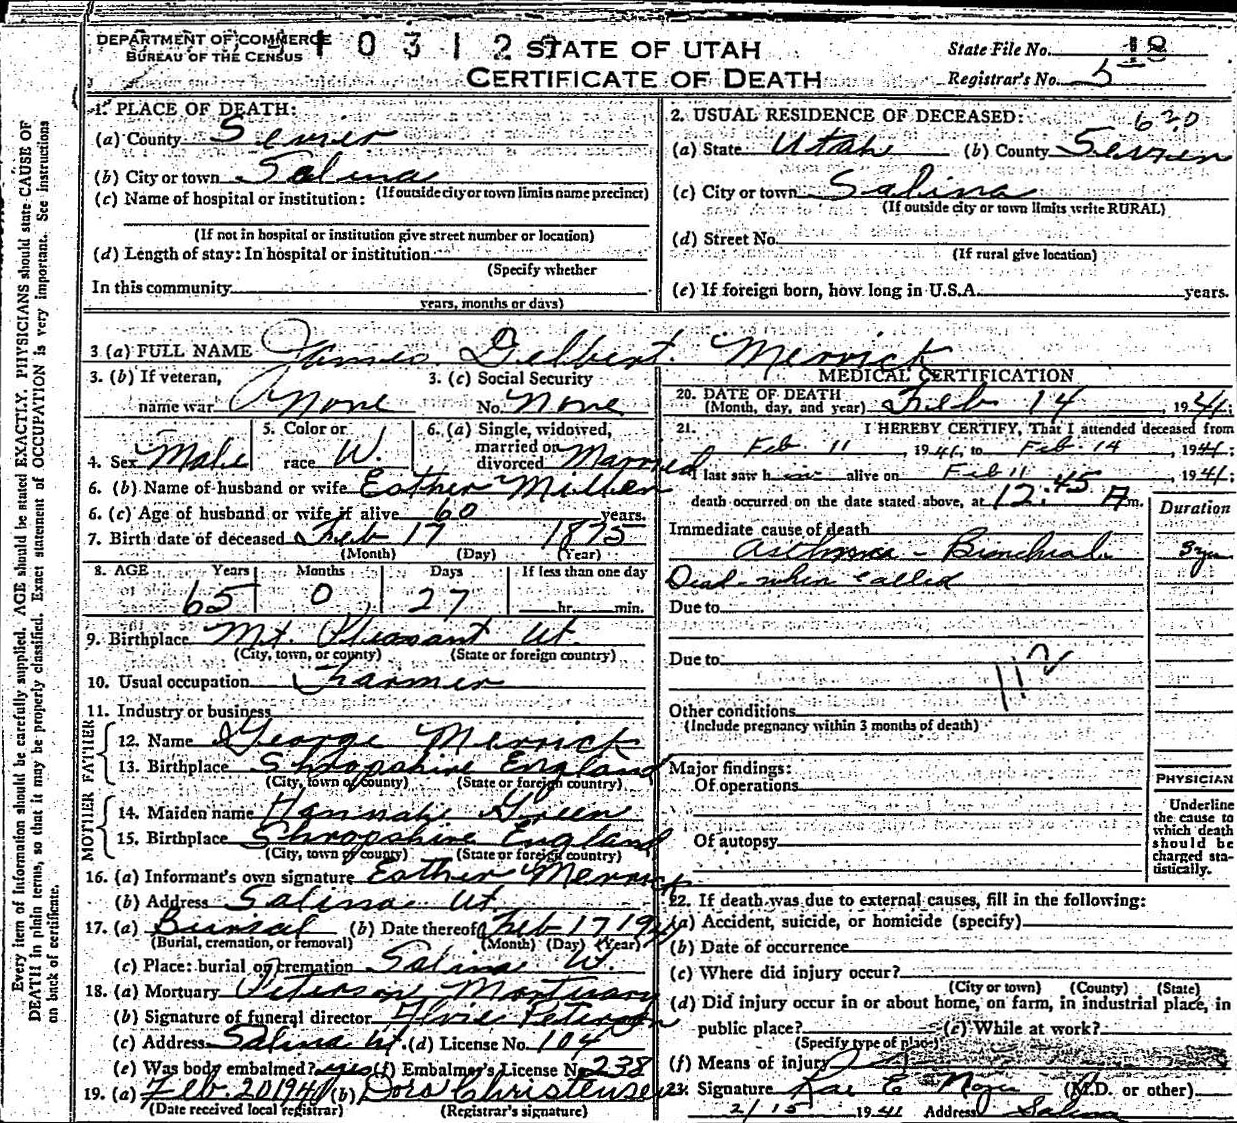 DEPARTMENT OF COMMERCE
BUREAU OF THE CENSUS
STATE OF UTAH
CERTIFICATE OF DEATH
State File No. 18
Registrar's No. 5
Every item of information should be carefully supplied. AGE should be stated EXACTLY. PHYSICIANS should state CAUSE OF
DEATH in plain terms, so that it may be properly classified. Exact statement of OCCUPATION is very important. See instructions
on back of certificate.
1. PLACE OF DEATH:
(a) County Sevier
(b) City or town Salina
(If outside city or town limits name precinct)
(c) Name of hospital or institution:
(If not in hospital or institution give street number or location)
(d) Length of stay: In hospital or institution
(Specify whether
In this community
years, months or days)
2. USUAL RESIDENCE OF DECEASED: 620
(a) State Utah (b) County Sevier
(c) City or town Salina
(If outside city or town limits write RURAL)
(d) Street No.
(If rural give location)
(e) If foreign born, how long in U.S.A. years.
3 (a) FULL NAME James Delbert Merrick
3. (b) If veteran,
name war None
3. (c) Social Security
No. None
4. Sex Male
5. Color or
race W.
6. (a) Single, widowed,
married or
divorced Married
6. (b) Name of husband or wife Esther Miller
6. (c) Age of husband or wife if alive 60 years.
7. Birth date of deceased Feb 17 1875
(Month) (Day) (Year)
8. AGE Years Months Days If less than one day
65 0 27 hr. min.
9. Birthplace Mt. Pleasant Ut.
(City, town, or county) (State or foreign country)
10. Usual occupation Farmer
11. Industry or business
FATHER
12. Name George Merrick
13. Birthplace Shropshire England
(City, town or county) (State or foreign country)
MOTHER
14. Maiden name Hannah Green
15. Birthplace Shropshire England
(City, town or county) (State or foreign country)
16. (a) Informant's own signature Esther Merrick
(b) Address Salina Ut
17. (a) Burial (b) Date thereof Feb 17 1941
(Burial, cremation, or removal) (Month) (Day) (Year)
(c) Place: burial or cremation Salina Ut.
18. (a) Mortuary Peterson Mortuary
(b) Signature of funeral director Elvie Peterson
(c) Address Salina Ut. (d) License No. 104
(e) Was body embalmed? yes (f) Embalmer's License No. 238
19. (a) Feb. 20 1941 (b) Dora Christensen
(Date received local registrar) (Registrar's signature)
MEDICAL CERTIFICATION
20. DATE OF DEATH
(Month, day, and year) Feb 14, 1941;
21. I HEREBY CERTIFY, That I attended deceased from
Feb. 11, 1941, to Feb. 14, 1941;
I last saw him alive on Feb 11, 1941;
death occurred on the date stated above, at 12:45 A m.
Duration
Immediate cause of death
Asthma - Bronchial 3 yrs
Dead when called
Due to
Due to
112
Other conditions
(Include pregnancy within 3 months of death)
Major findings:
Of operations
Of autopsy
PHYSICIAN
Underline
the cause to
which death
should be
charged sta-
tistically.
22. If death was due to external causes, fill in the following:
(a) Accident, suicide, or homicide (specify)
(b) Date of occurrence
(c) Where did injury occur?
(City or town) (County) (State)
(d) Did injury occur in or about home, on farm, in industrial place, in
public place? (e) While at work?
(Specify type of place)
(f) Means of injury
23. Signature Rae E Noyes (M.D. or other)
2/15 1941 Address Salina